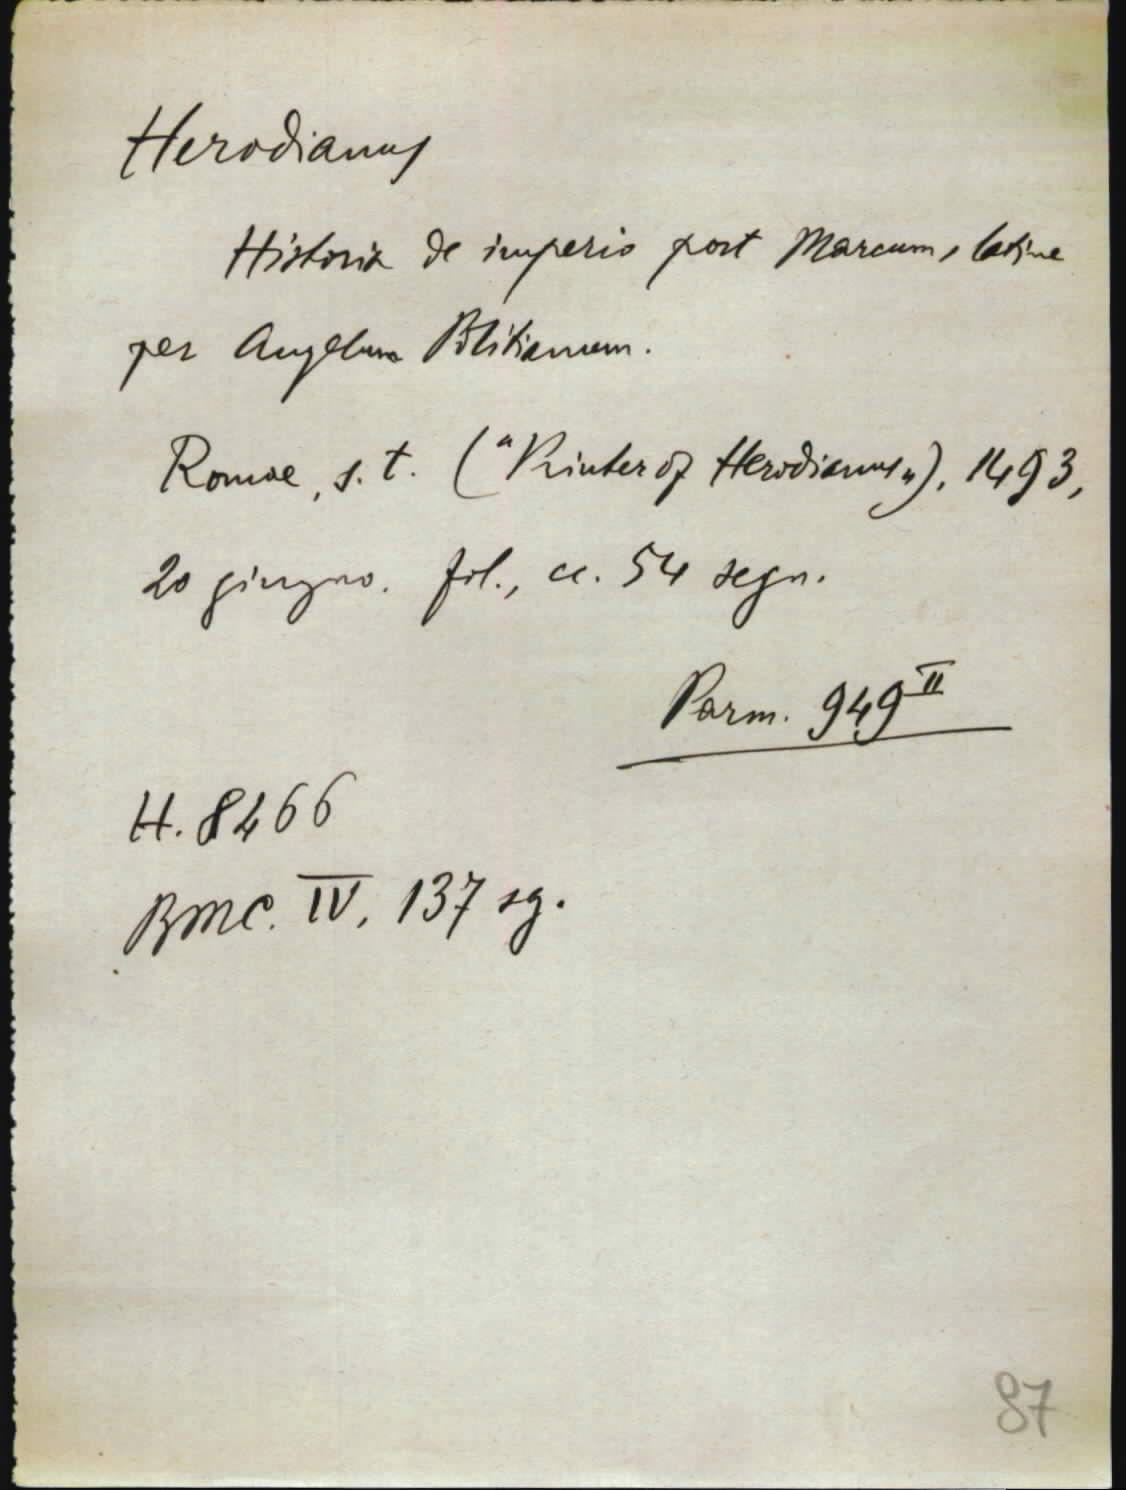 Herodianus
Historia de imperio post Marcum, latine
per Angelum Politianum.
Romae, s. t. ("Printer of Herodianus„), 1493,
20 giugno. fol., cc. 54 segn.
Parm. 949 II
H. 8466
BMC. IV, 137 sg.
87